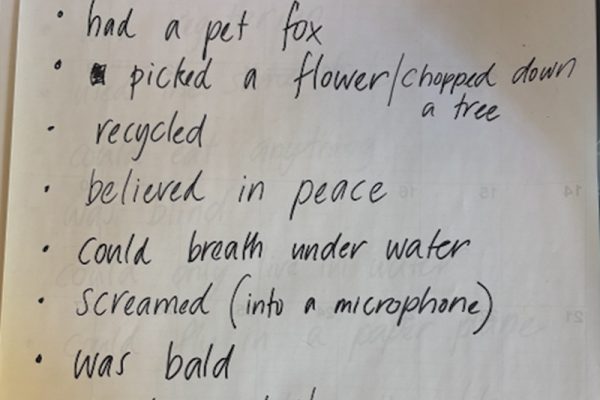 • had a pet fox
• picked a flower/chopped down
a tree
• recycled
• believed in peace
• could breath under water
• screamed (into a microphone)
• was bald